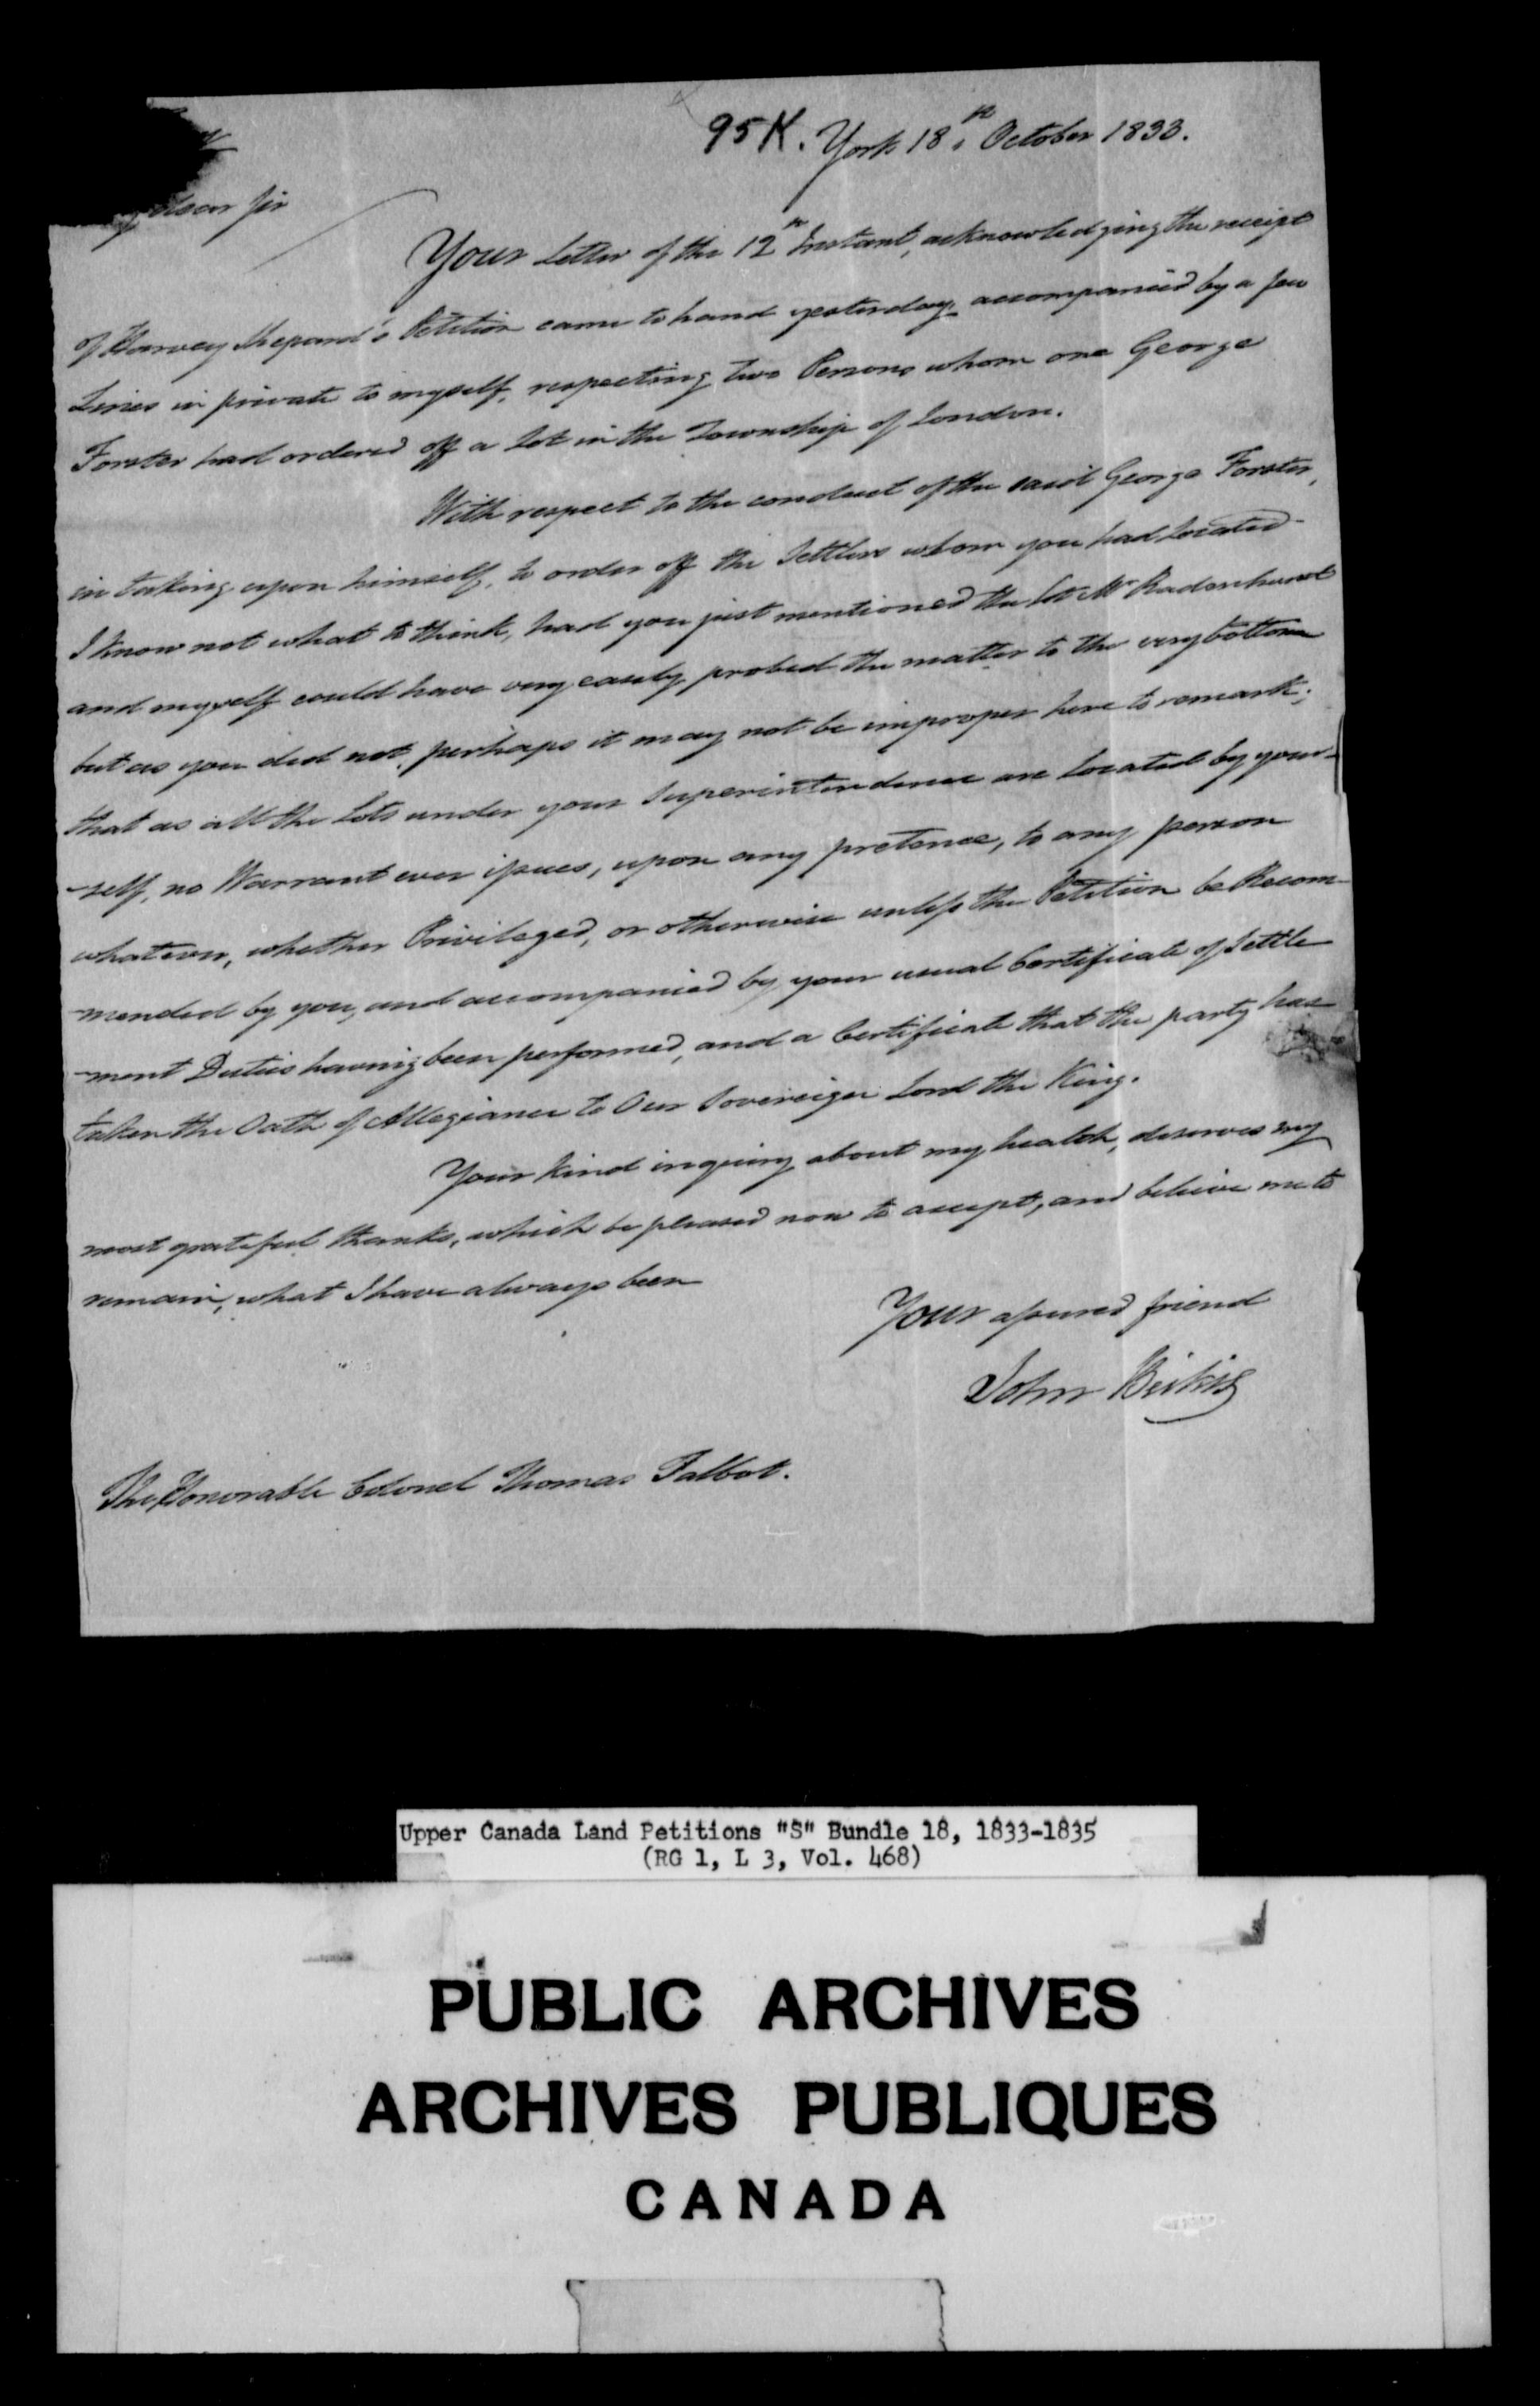 95K. York 18th October 1833.
dear Sir
Your Letter of the 12th Instant, acknowledging the receipt
of Harvey Shepard's Petition came to hand yesterday accompanied by a few
Lines in private to myself, respecting two Persons whom one George
Forster had ordered off a Lot in the Township of London.
With respect to the conduct of the said George Forster,
in taking upon himself, to order off the Settlers whom you had located-
I know not what to think, had you just mentioned the Lot Mr Radenhurst
and myself could have very easily probed the matter to the very bottom
but as you did not, perhaps it may not be improper here to remark;
that as all the Lots under your Superintendence are located by your-
-self, no Warrant ever issues, upon any pretence, to any person
whatever, whether Privileged, or otherwise unless the Petition be Recom-
-mended by you, and accompanied by your usual Certificate of Settle
-ment Duties having been performed, and a Certificate that the party has
taken the Oath of Allegiance to Our Sovereign Lord the King.
Your kind inquiry about my health, deserves my
most grateful thanks, which be pleased now to accept, and believe me to
remain, what I have always been
Your assured friend
John Beikie
The Honorable Colonel Thomas Talbot.
Upper Canada Land Petitions "S" Bundle 18, 1833-1835
(RG 1, L 3, Vol. 468)
PUBLIC ARCHIVES
ARCHIVES PUBLIQUES
CANADA